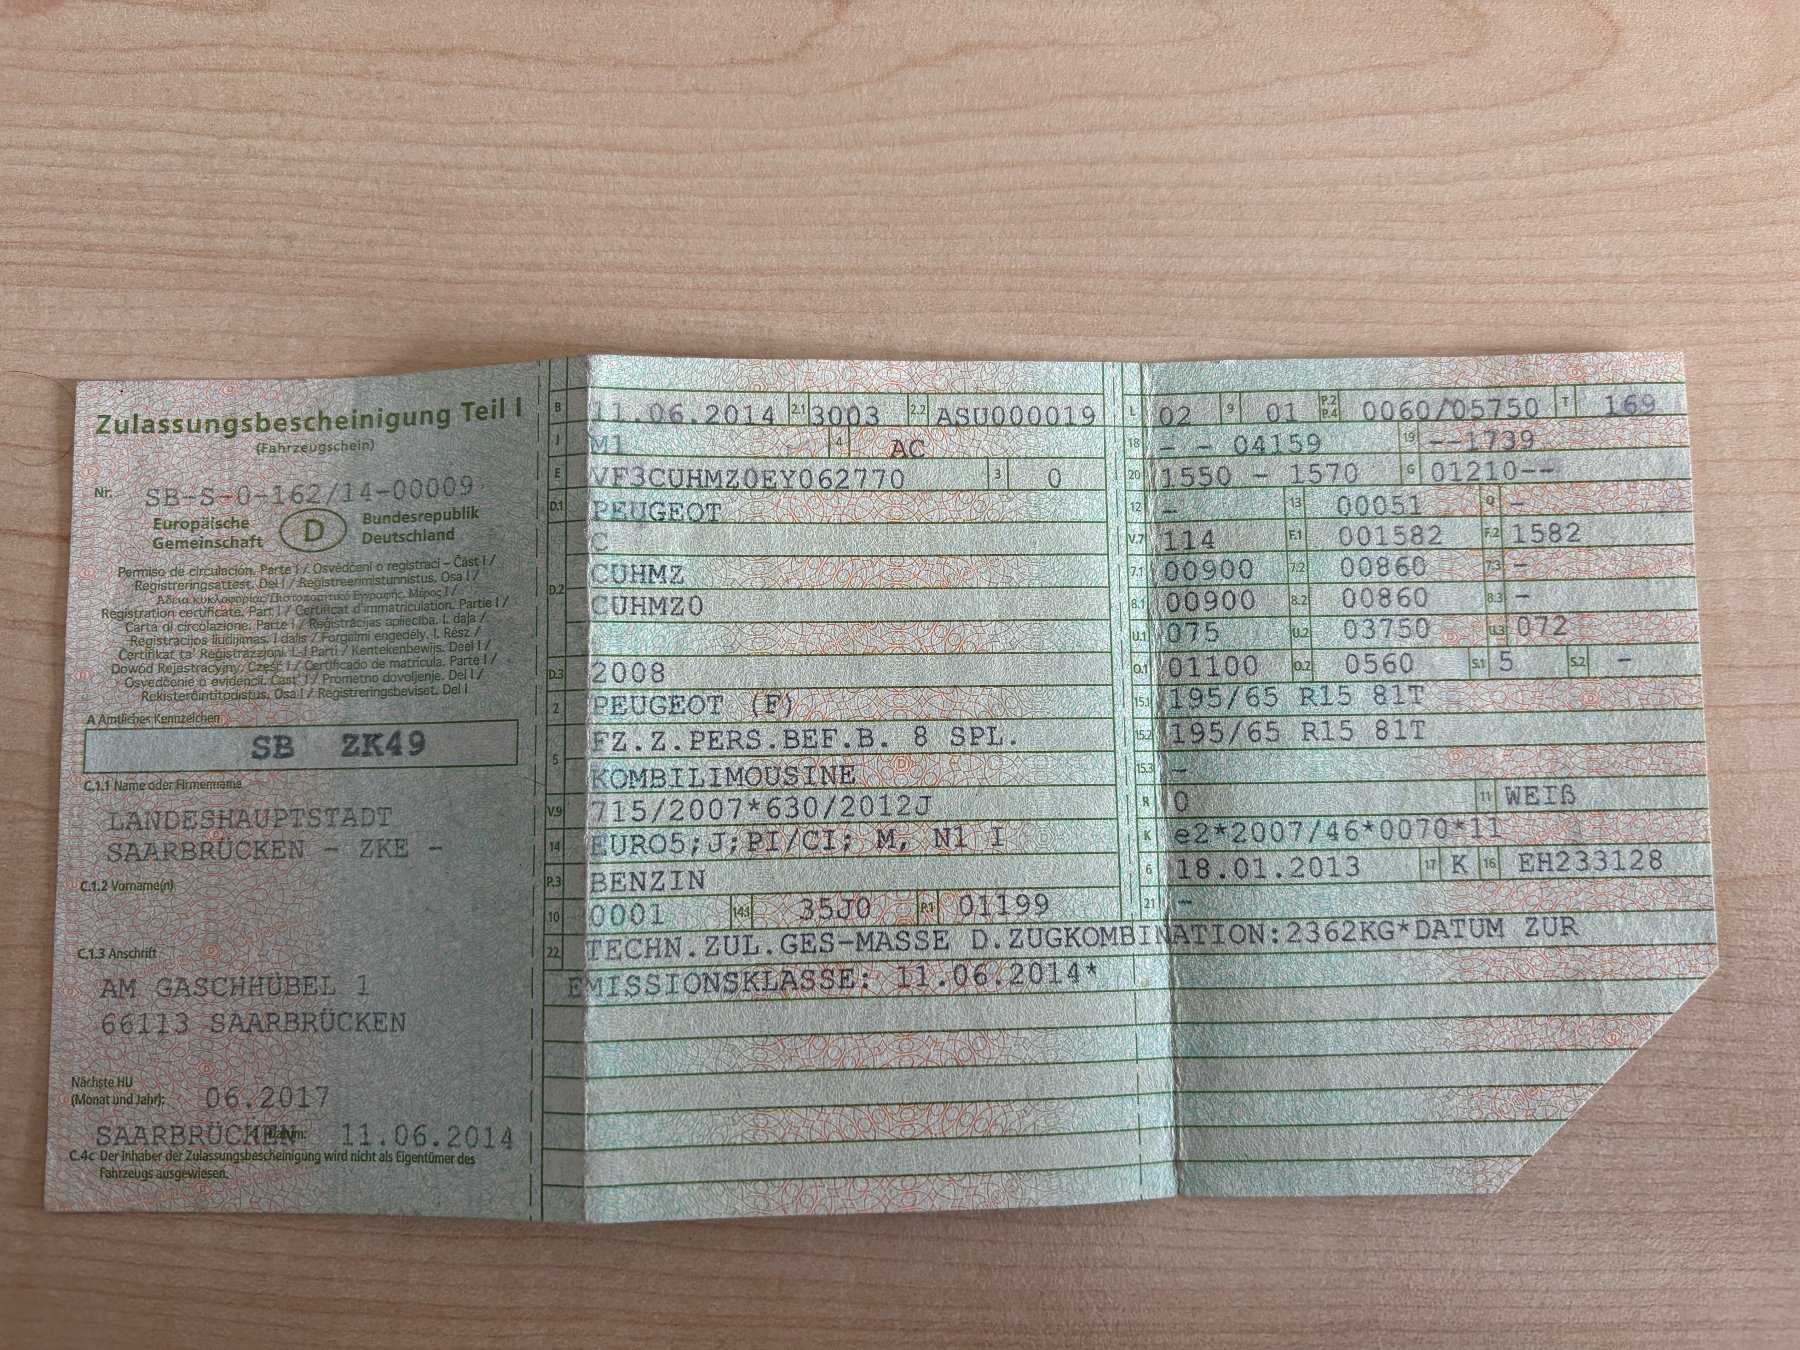 Zulassungsbescheinigung Teil I
(Fahrzeugschein)
Nr. SB-S-0-162/14-00009
Europäische Gemeinschaft D Bundesrepublik Deutschland
Permiso de circulación. Parte I / Osvědčení o registraci – Část I /
Registreringsattest. Del I / Registreerimistunnistus. Osa I /
Άδεια κυκλοφορίας/Πιστοποιητικό Εγγραφής. Μέρος I /
Registration certificate. Part I / Certificat d'immatriculation. Partie I /
Carta di circolazione. Parte I / Reģistrācijas apliecība. I. daļa /
Registracijos liudijimas. I dalis / Forgalmi engedély. I. Rész /
Ċertifikat ta' Reġistrazzjoni. L-I Parti / Kentekenbewijs. Deel I /
Dowód Rejestracyjny. Część I / Certificado de matrícula. Parte I /
Osvedčenie o evidencii. Časť I / Prometno dovoljenje. Del I /
Rekisteröintitodistus. Osa I / Registreringsbeviset. Del I
A Amtliches Kennzeichen
SB ZK49
C.1.1 Name oder Firmenname
LANDESHAUPTSTADT
SAARBRÜCKEN - ZKE -
C.1.2 Vorname(n)
C.1.3 Anschrift
AM GASCHHÜBEL 1
66113 SAARBRÜCKEN
Nächste HU
(Monat und Jahr): 06.2017
SAARBRÜCKEN Datum: 11.06.2014
C.4c Der Inhaber der Zulassungsbescheinigung wird nicht als Eigentümer des
Fahrzeugs ausgewiesen.
B 11.06.2014 2.1 3003 2.2 ASU000019
J M1 4 AC
E VF3CUHMZ0EY062770 3 0
D.1 PEUGEOT
C
D.2 CUHMZ
CUHMZ0
D.3 2008
2 PEUGEOT (F)
5 FZ.Z.PERS.BEF.B. 8 SPL.
KOMBILIMOUSINE
V.9 715/2007*630/2012J
14 EURO5;J;PI/CI; M, N1 I
P.3 BENZIN
10 0001 14.1 35J0 P.1 01199
L 02 9 01 P.2 P.4 0060/05750 T 169
18 - - 04159 19 --1739
20 1550 - 1570 G 01210--
12 - 13 00051 Q -
V.7 114 F.1 001582 F.2 1582
7.1 00900 7.2 00860 7.3 -
8.1 00900 8.2 00860 8.3 -
U.1 075 U.2 03750 U.3 072
O.1 01100 O.2 0560 S.1 5 S.2 -
15.1 195/65 R15 81T
15.2 195/65 R15 81T
15.3 -
R 0 11 WEIß
K e2*2007/46*0070*11
6 18.01.2013 17 K 16 EH233128
21 -
22 TECHN.ZUL.GES-MASSE D.ZUGKOMBINATION:2362KG*DATUM ZUR
EMISSIONSKLASSE: 11.06.2014*